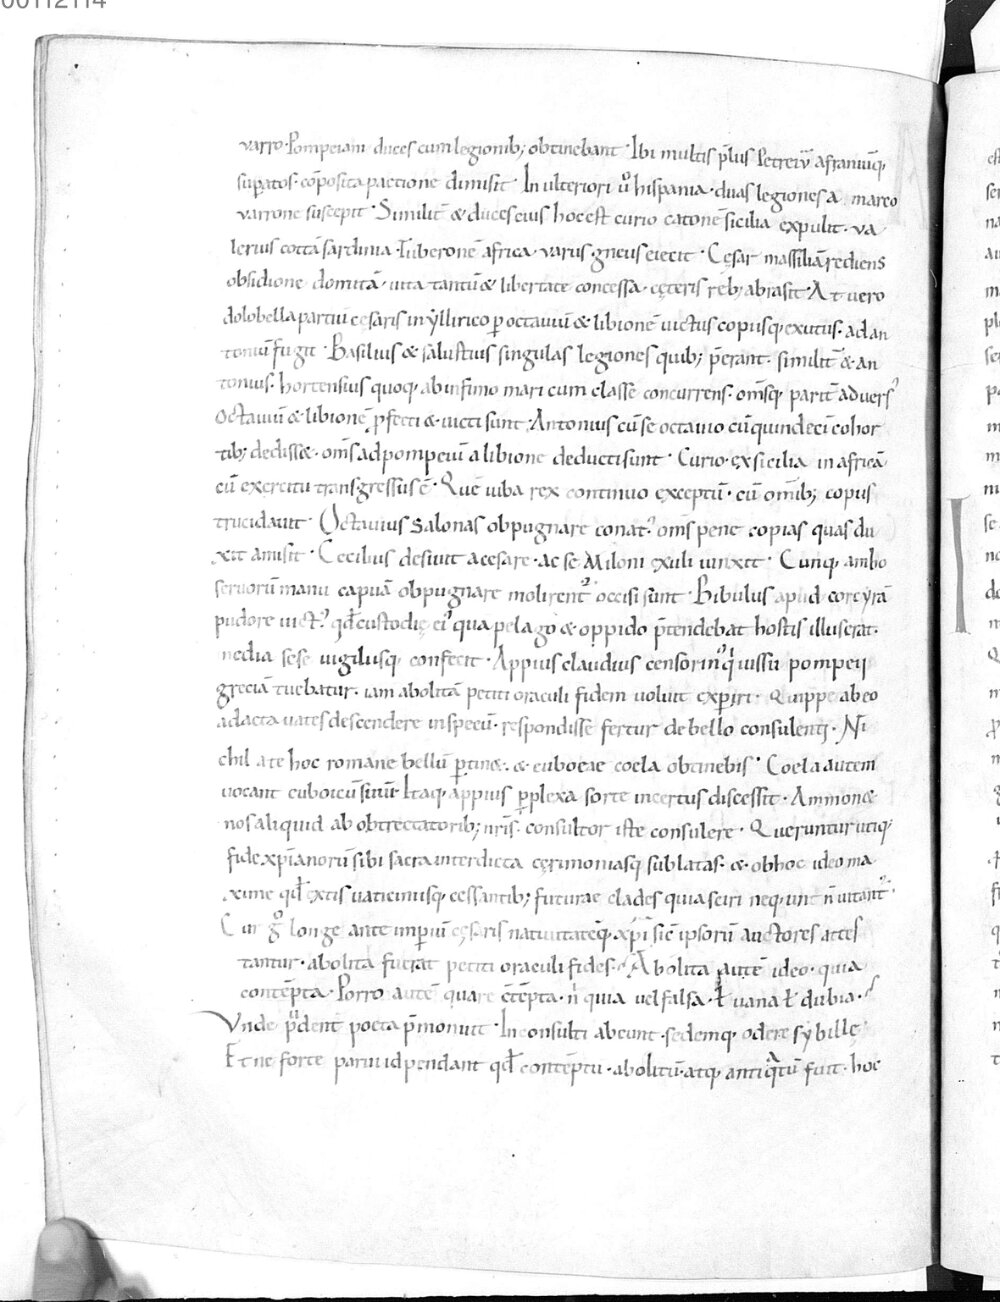 00112114
varro· Pompeiani duces cum legionib; obtinebant· Ibi multis p̄lus Petreiū afraniūq,
suꝑatos· cōposita pactione dimisit· In ulteriori ū hispania· duas legiones a marco
varrone suscepit· Similit̄ & duces eius hoc est curio catonē sicilia expulit· va
lerius cottā sardinia· Tuberonē africa· varus· gneus eiecit· Cęsar massiliā rediens
obsidione domitā· uita tantū & libertate concessa· cęteris reb; abrasit· At uero
dolobella partiū cesaris in yllirico ꝑ octauiū & libionē uictus copiisq, exutus· ad an
toniū fugit· Basilius & salustius singulas legiones quib; p̄erant· similit̄ & an
tonius· hortensius quoq, ab infimo mari cum classe concurrens· om̄sq, parit̄ aduers᾽
octauiū & libionē ꝓfecti & uicti sunt· Antonius cū se octauio cū quindeci cohor
tib; dediss&· om̄s ad pompeiū a libione deducti sunt· Curio· ex sicilia in africā
cū exercitu transgressus ē· Quē iuba rex continuo exceptū· cū omib; copiis
trucidauit· Octauius Salonas obpugnare conat᾽· om̄s pene copias quas du
xit amisit· Cecilius desiuit a cesare· ac se Miloni exuli iunxit· Cunq, ambo
seruorū manu capuā obpugnare molirent᾽ occisi sunt· Bibulus apud corcyrā
pudore uict᾽ qđ custodię ei᾽ qua pelago & oppido p̄tendebat hostis illuserat·
media sese uigiliisq, confecit· Appius claudius censorin᾽ q iussu pompeii
greciā tuebatur· iam abolitā petiti oraculi fidem uoluit exꝑiri· Quippe ab eo
adacta uates descendere in specū· respondisse fertur de bello consulenti· Ni
chil a te hoc romane bellū ꝑtin&· & euboeae coela obtinebis· Coela autem
uocant euboicū sinū· Itaq, appius ꝑplexa sorte incertus discessit· Ammon&
nos aliquid ab obtrectatorib; nr̄is· consultor iste consulere· Queruntur utiq,
fide xp̄ianorū sibi sacra interdicta cęrimoniasq, sublatas· & ob hoc ideo ma
xime qđ extis uaticiniisq, cessantib; futurae clades quia sciri nequeunt n̄ uitant᾽·
Cur g° longe ante imperiū cęsaris natiuitatēq, xp̄i sic̄ ipsorū auctores attes
tantur· abolita fuerat petiti oraculi fides· Abolita autē ideo· quia
contēpta· Porro autē quare cōtēpta· n̄ quia uel falsa· ł uana ł dubia·
Vnde p̄dent̄ poeta p̄monuit· Inconsulti abeunt· sedemq, odere sybillę
Et ne forte parui id pendant qđ contēptū· abolitū· atq, antiq̄tū fuit· hoc